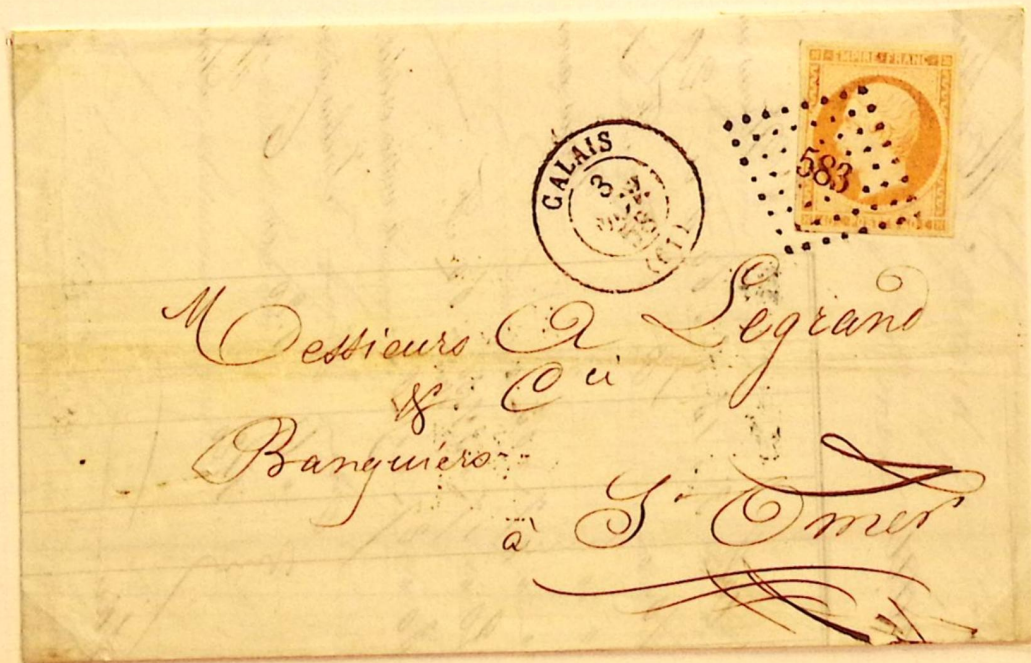 EMPIRE FRANC
583
CALAIS
3
(61)
Messieurs A Legrand
& Cie
Banquiers
à St Omer